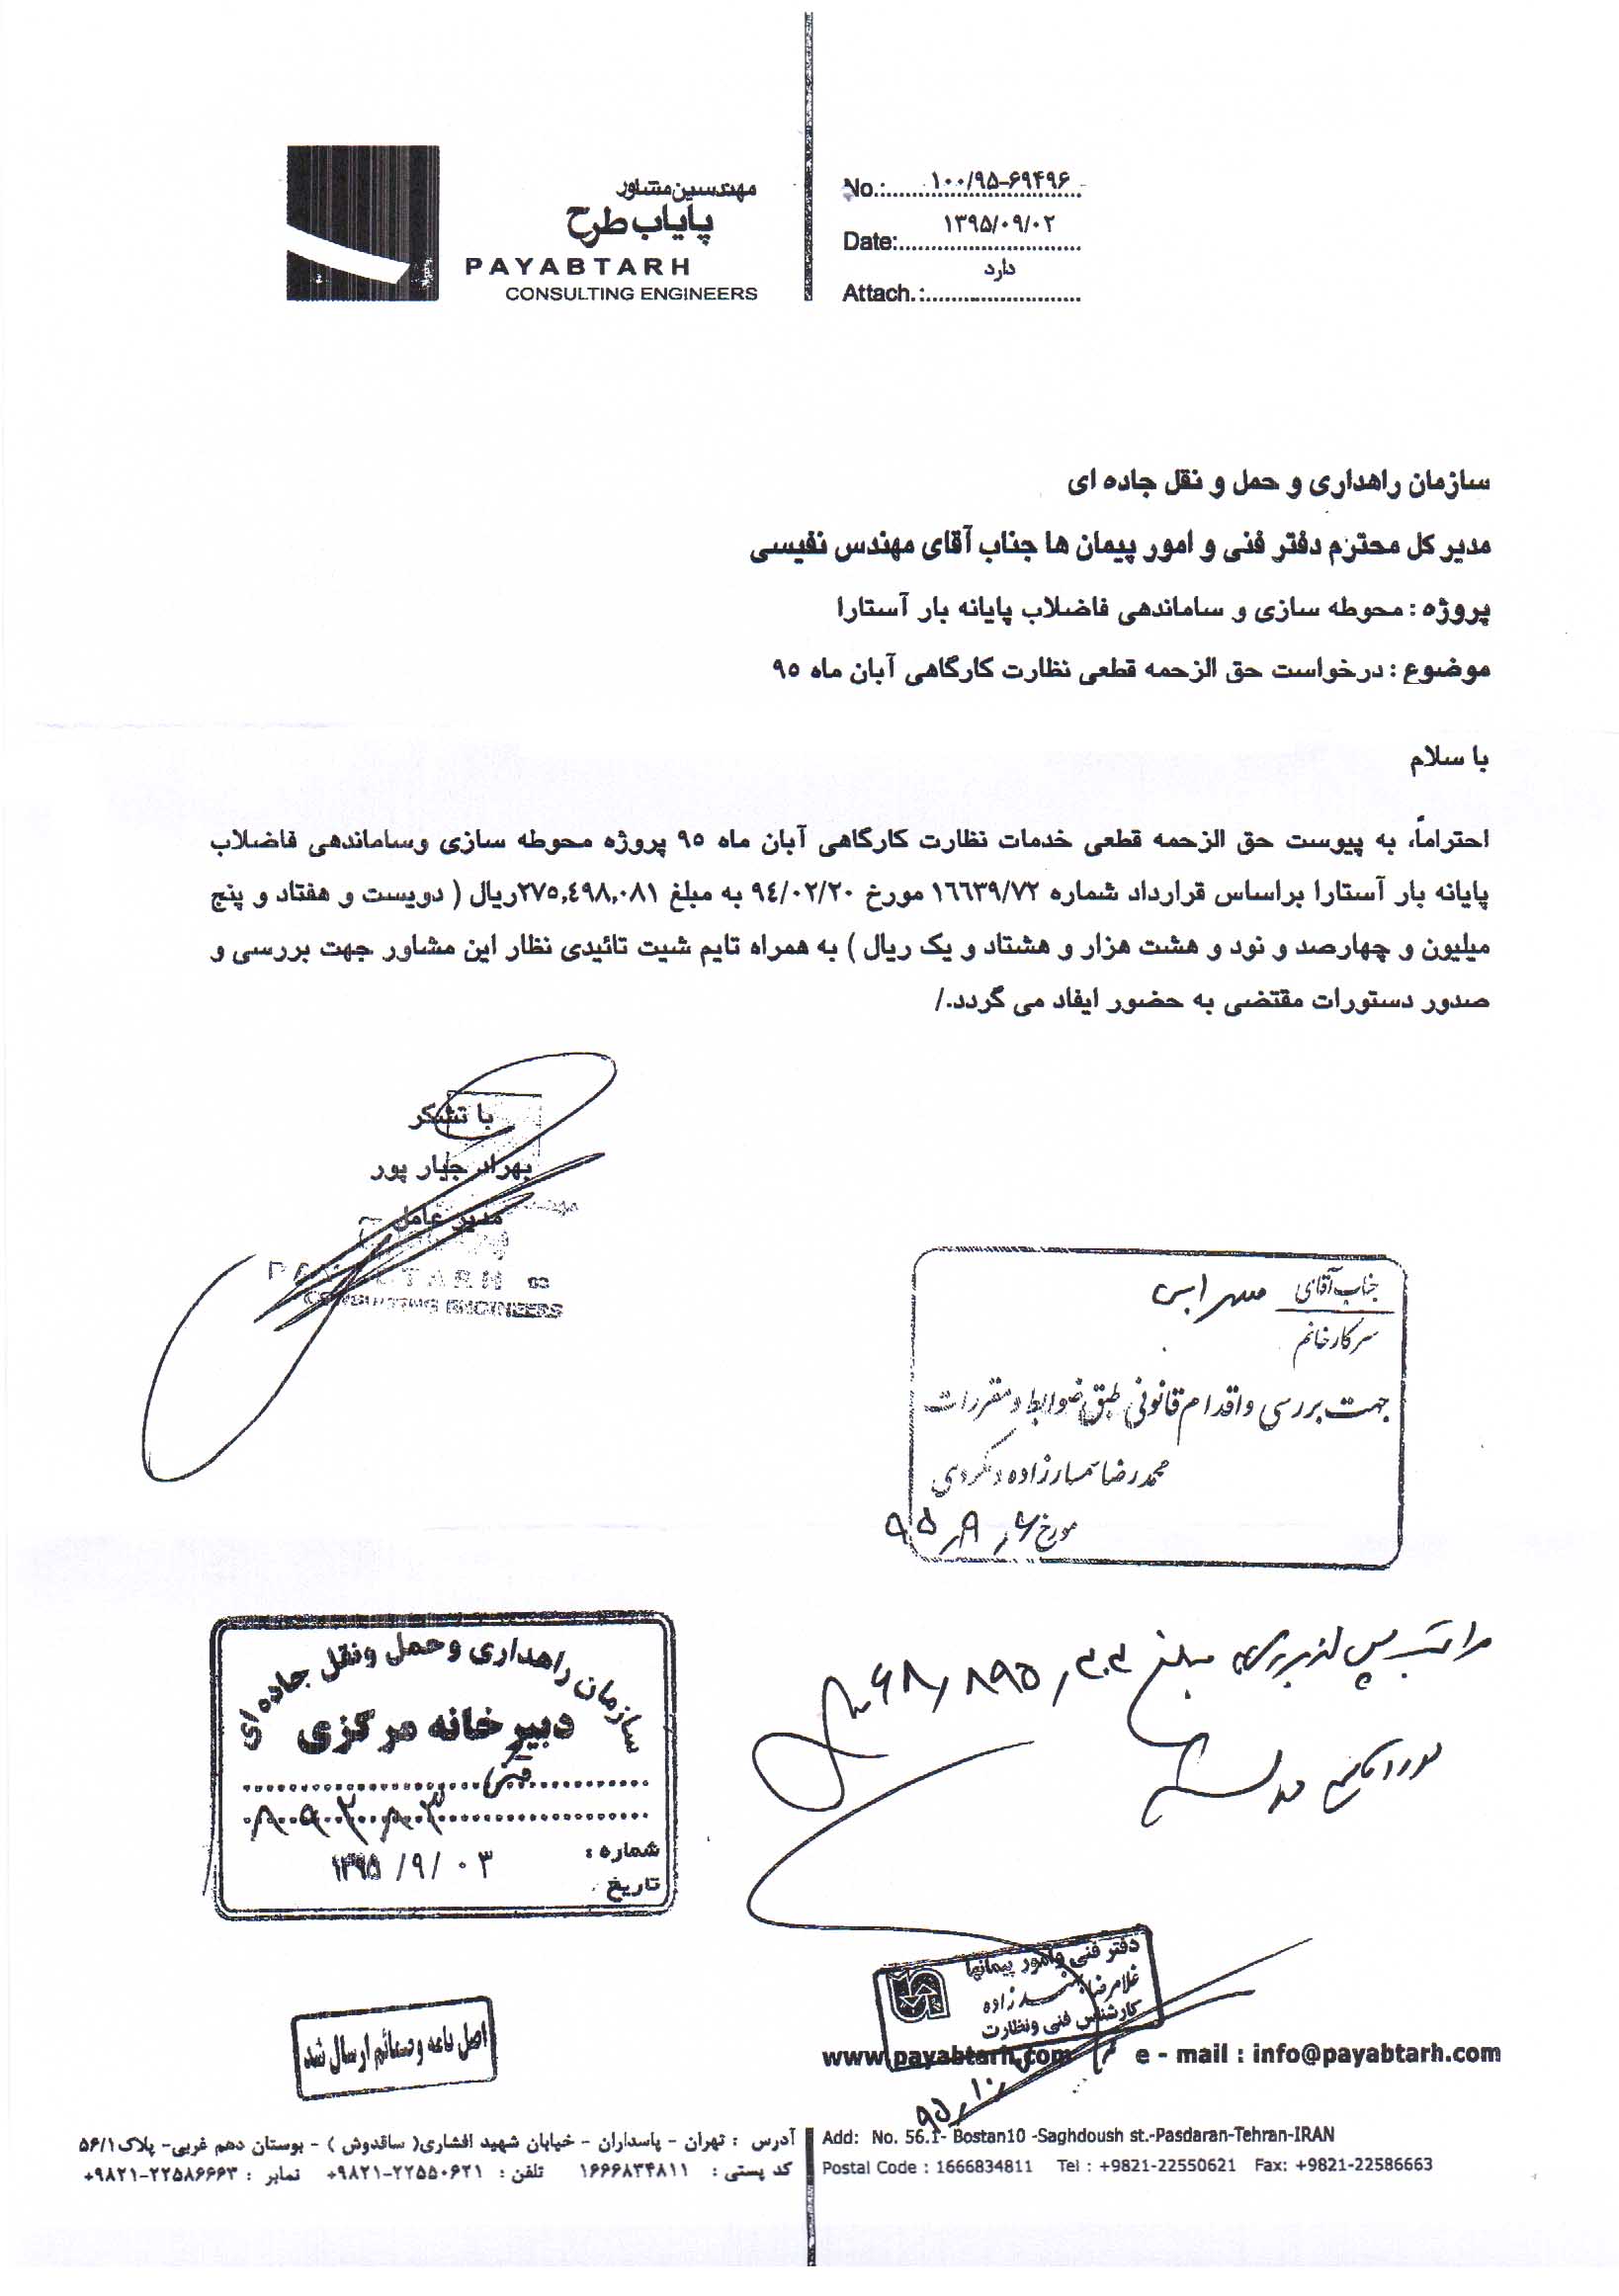 مهندسین مشاور
پایاب طرح
PAYABTARH
CONSULTING ENGINEERS
No.: ۱۰۰/۹۵-۶۹۴۹۶
Date: ۱۳۹۵/۰۹/۰۲
Attach.: دارد
سازمان راهداری و حمل و نقل جاده ای
مدیر کل محترم دفتر فنی و امور پیمان ها جناب آقای مهندس نفیسی
پروژه : محوطه سازی و ساماندهی فاضلاب پایانه بار آستارا
موضوع : درخواست حق الزحمه قطعی نظارت کارگاهی آبان ماه ۹۵
با سلام
احتراماً، به پیوست حق الزحمه قطعی خدمات نظارت کارگاهی آبان ماه ۹۵ پروژه محوطه سازی وساماندهی فاضلاب
پایانه بار آستارا براساس قرارداد شماره ۱۶۶۳۹/۷۲ مورخ ۹٤/۰۲/۲۰ به مبلغ ۲۷۵,٤۹۸,۰۸۱ریال ( دویست و هفتاد و پنج
میلیون و چهارصد و نود و هشت هزار و هشتاد و یک ریال ) به همراه تایم شیت تائیدی نظار این مشاور جهت بررسی و
صدور دستورات مقتضی به حضور ایفاد می گردد./
با تشکر
بهراد جبار پور
مدیر عامل
PAYABTARH
CONSULTING ENGINEERS
جناب آقای سهرابی
سرکار خانم
جهت بررسی و اقدام قانونی طبق ضوابط و مقررات
محمدرضا
مورخ ۹۵
مراتب پس از بررسی مبلغ
سازمان راهداری و حمل ونقل جاده ای
دبیرخانه مرکزی
فنی
۸۰۹۳۰۸۳
شماره :
تاریخ ۱۳۹۵/۹/۰۳
دفتر فنی وامور پیمانها
غلامرضا
کارشناس فنی ونظارت
اصل نامه و ضمائم ارسال شد
www.payabtarh.com e - mail : info@payabtarh.com
آدرس : تهران - پاسداران - خیابان شهید افشاری( ساقدوش ) - بوستان دهم غربی- پلاک ۵۶/۱
کد پستی : ۱۶۶۶۸۳۴۸۱۱ تلفن : ۲۲۵۵۰۶۲۱-۹۸۲۱+ نمابر : ۲۲۵۸۶۶۶۳-۹۸۲۱+
Add: No. 56.1- Bostan10 -Saghdoush st.-Pasdaran-Tehran-IRAN
Postal Code : 1666834811 Tel : +9821-22550621 Fax: +9821-22586663